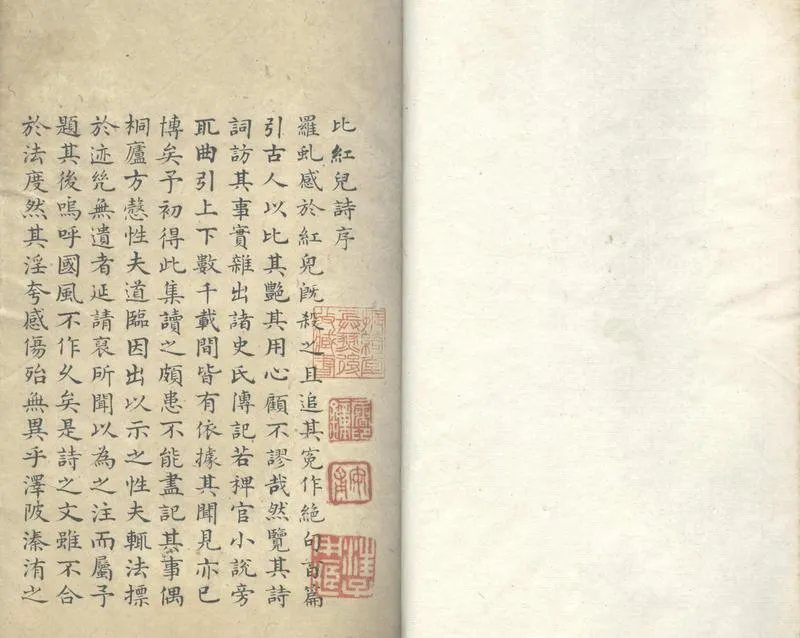 比紅兒詩序
羅虬感於紅兒既殺之且追其冤作絶句百篇
引古人以比其艷其用心顧不謬哉然覽其詩
詞訪其事實雜出諸史氏傳記若稗官小説旁
罔曲引上下數千載間皆有依據其聞見亦已
博矣予初得此集讀之頗患不能盡記其事偶
桐廬方愨性夫道臨因出以示之性夫輒法摽
於迹㡬無遺者延請裒所聞以為之注而屬予
題其後嗚呼國風不作久矣是詩之文雖不合
於法度然其淫夸感傷殆無異乎澤陂溱洧之